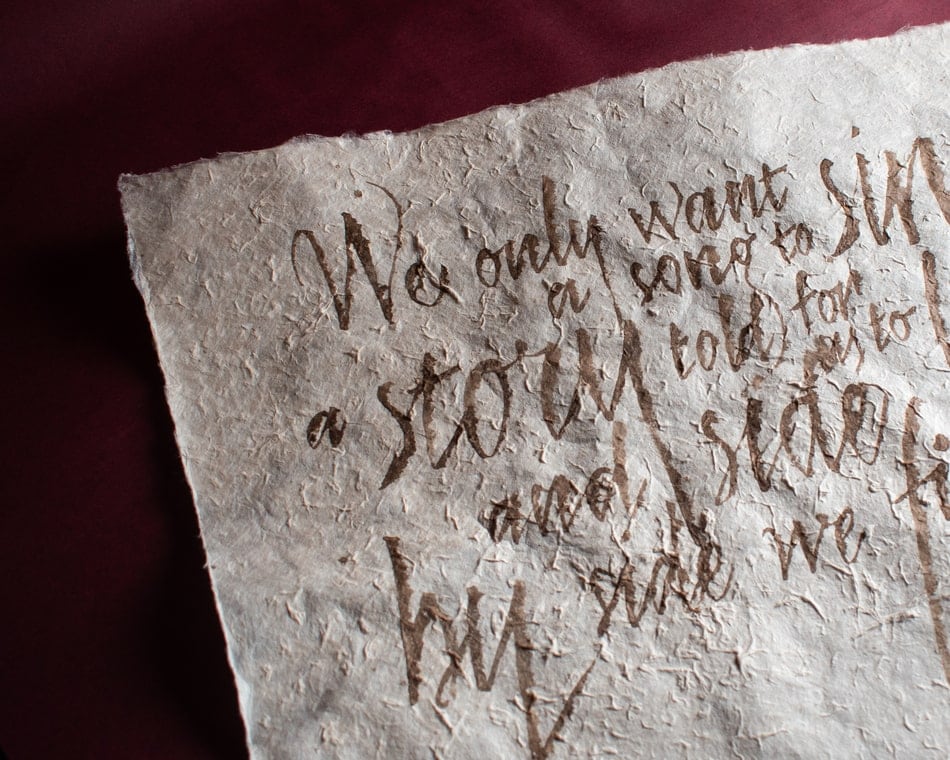 We only want
a song to sin
a story told for
as to
and side
by side we